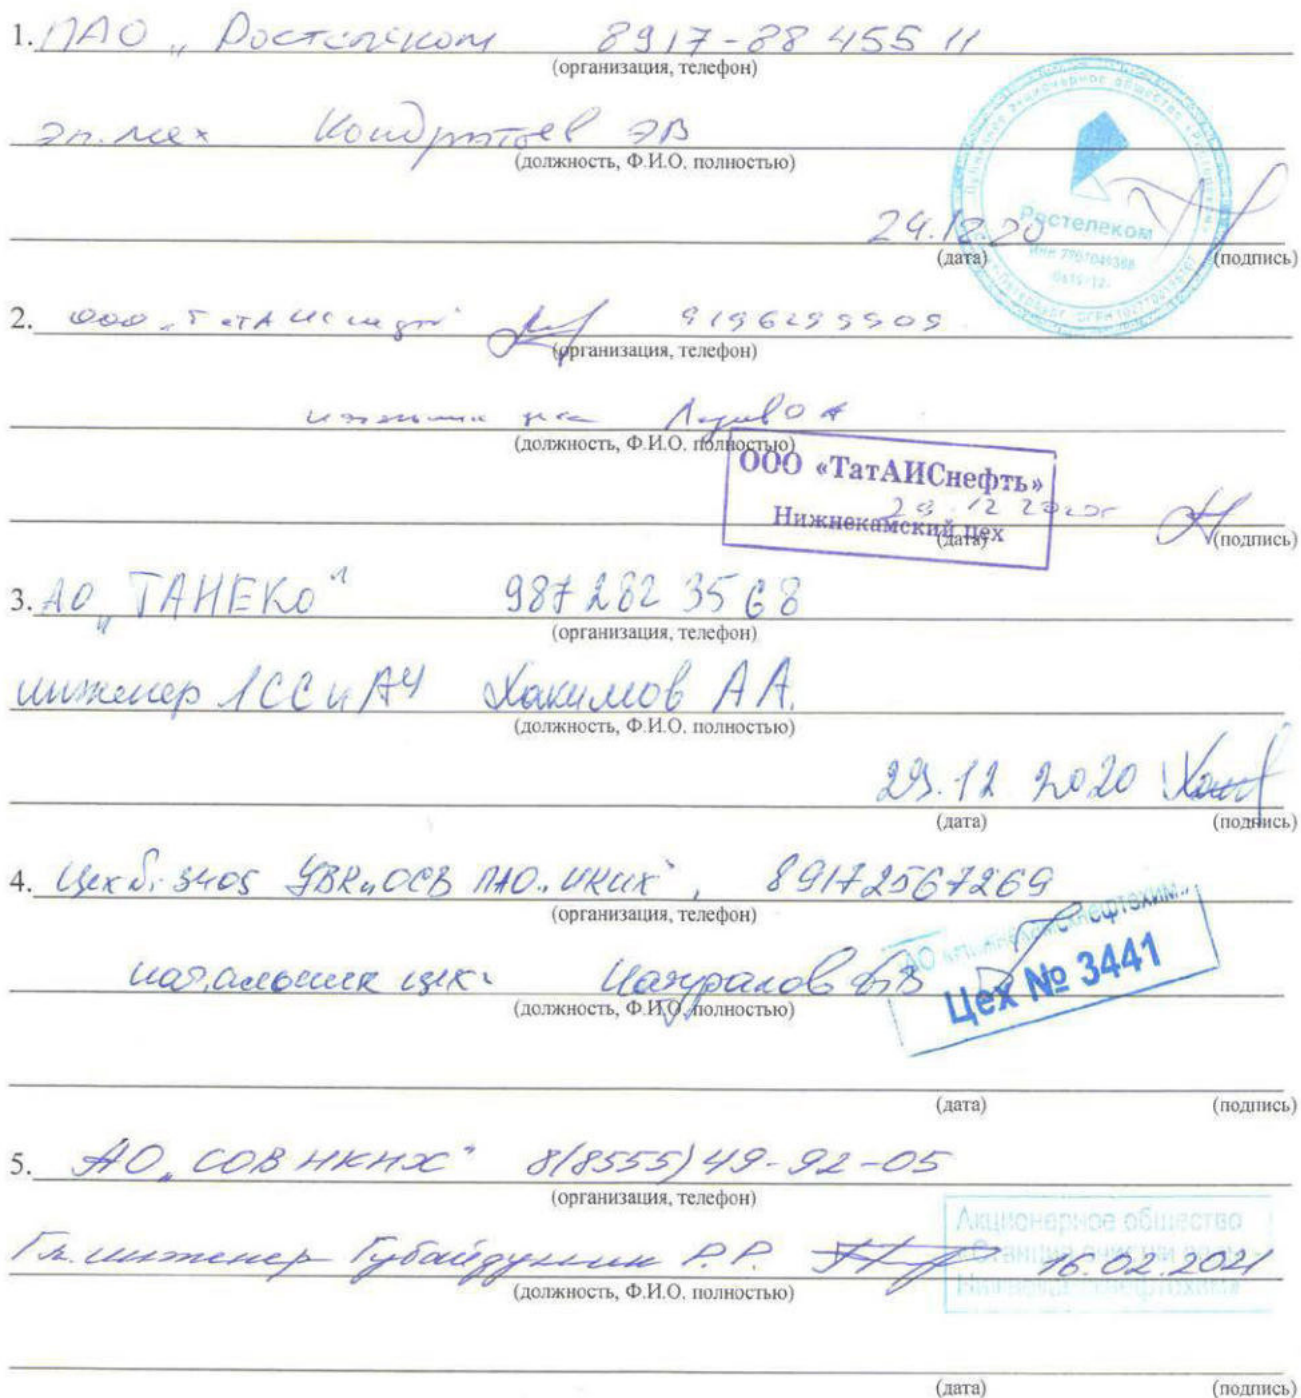 1. ПАО „Ростелеком 8917-88 455 11
(организация, телефон)
эл. мех Кондратьев ЭВ
(должность, Ф.И.О. полностью)
Публичное акционерное общество «Ростелеком»
Ростелеком
24.12.20
(дата) (подпись)
2. ООО „ТатАИСнефть" 9196299909
(организация, телефон)
(должность, Ф.И.О. полностью)
ООО «ТатАИСнефть»
Нижнекамский цех
29.12 2020г
(дата) (подпись)
3. АО „ТАНЕКО" 987 282 35 68
(организация, телефон)
инженер ЛСС и АЧ Хакимов А А.
(должность, Ф.И.О. полностью)
29.12 2020
(дата) (подпись)
4. Цех № 3405 УВКиОСВ ПАО „НКНХ", 89172567269
(организация, телефон)
начальник цеха
(должность, Ф.И.О. полностью)
АО «Нижнекамскнефтехим»
Цех № 3441
(дата) (подпись)
5. АО „СОВ НКНХ" 8(8555)49-92-05
(организация, телефон)
Гл. инженер Губайдуллин Р.Р. 16.02.2021
(должность, Ф.И.О. полностью)
Акционерное общество
«Станция очистки воды -
Нижнекамскнефтехим»
(дата) (подпись)